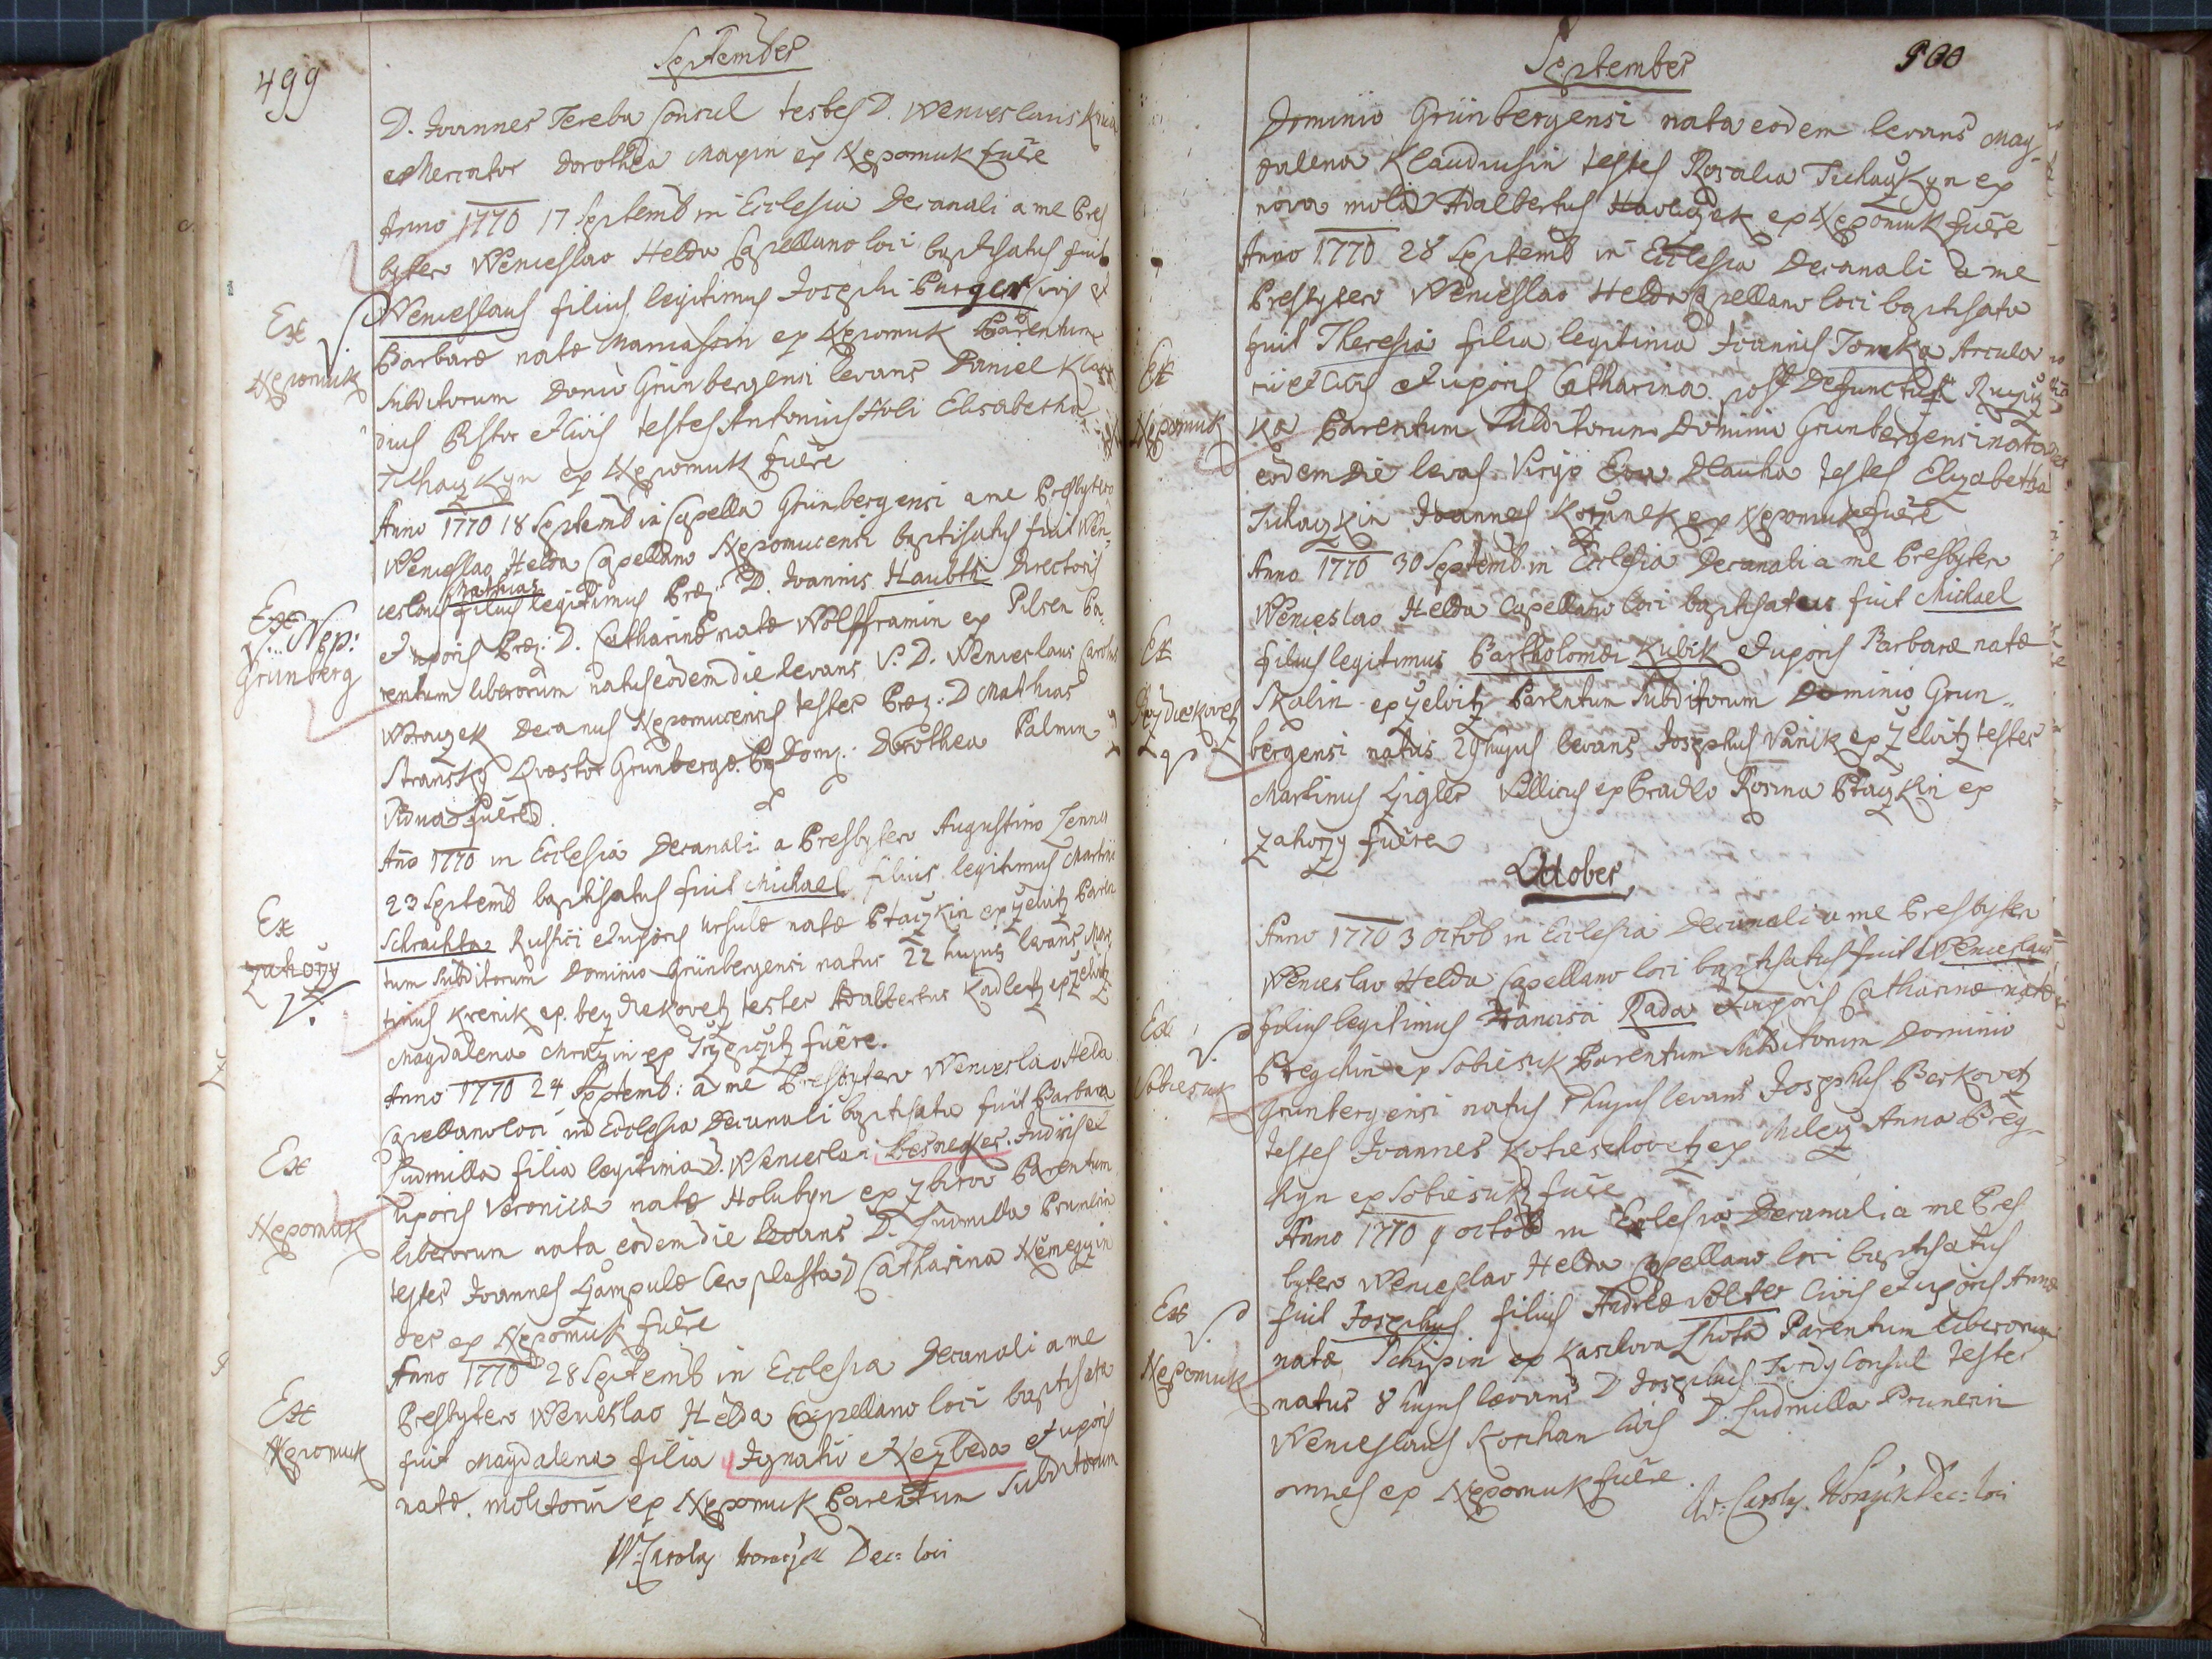 499
September
D. Joannes Tereba Consul testes D. Wenceslaus
Mercator Dorothea Mayin ex Nepomuk fuere
Anno 1770 17 Septemb in Ecclesia Decanali a me Pres
bytero Wenceslao Helda Capellano loci baptisatus fuit
Ex
Nepomuk
Wenceslaus filius legitimus Josephi Purger civis et
Barbarae natae ex Nepomuk Parentum
Subditorum Domi Grünbergensi levans Daniel Klau
dius Pistor et Civis testes Antonius Holi Elisabetha
Tichaykyn ex Nepomuk fuere
Anno 1770 18 Septemb in Capella Grünbergensi a me Presbytero
Wenceslao Helda Capellano Nepomucensi baptisatus fuit Wen
Ex Nep:
Grünberg
ceslaus Mathias filius legitimus Præ: D. Joannis Haubtk Directoris
et uxoris Præ: D. Catharinæ natæ Wolfframin ex Pilsen Pa
rentum liberorum natus eodem die levans V. D. Wenceslaus Carolus
Worayek Decanus Nepomucensis testes Præ: D Mathias
Stransky Quæstor Grünbergæ Dorothea Palmin
Vidua fuere
Ano 1770 in Ecclesia Decanali a Presbytero Augustino Zenner
23 Septemb baptisatus fuit Michael filius legitimus Martini
Ex
Zahorzy
Schrachta Rustici et uxoris Ursulæ natæ Ptaczkin ex Zelvitz Paren
tum Subditorum Dominio Grünbergensi natus 22 hujus levans Mar
tinus Krenik ex testes Adalbertus Kadletz ex Zelvitz
Magdalena Mrazin ex fuere.
Anno 1770 24 Septemb: a me Presbytero Wenceslao Helda
Capellano loci in Ecclesia Decanali baptisata fuit Barbara
Ex
Nepomuk
Ludmilla filia legitima D. Wenceslai Besnegker Judicis et
uxoris Veronicæ natæ Holubyn ex Zbirov Parentum
liberorum nata eodem die levans D. Ludmilla Prunerin
testes Joannes Catharina
ex Nepomuk fuere
Anno 1770 28 Septemb in Ecclesia Decanali a me
Presbytero Wenceslao Helda Capellano loci baptisata
Ex
Nepomuk
fuit Magdalena filia Ignatii Nezbeda et uxoris
natæ molitorin ex Nepomuk Parentum Subditorum
W: Caroly Worayek Dec: loci
September
500
Dominio Grünbergensi nata eodem levans Mag
dalena Klaudiusin testes Rosalia Tichayckyn ex
nova mola Adalbertus Havliczek ex Nepomuk fuere
Anno 1770 28 Septemb in Ecclesia Decanali a me
Presbytero Wenceslao Helda Capellano loci baptisata
Ex
Nepomuk
fuit Theresia filia legitima Joannis Tomka Arcula
rii et Civis et uxoris Catharina post Defunctus
ka Parentum Subditorum Dominio Grünbergensi nata
eodem die levas Virgo Eva Dlauha testes Elizabetha
Tichayckin Joannes Korzinek ex Nepomuk fuere
Anno 1770 30 Septemb in Ecclesia Decanali a me Presbytero
Wenceslao Helda Capellano loci baptisatus fuit Michael
Ex
filius legitimus Bartholomæi Kubik et uxoris Barbaræ natæ
Skalin ex Zelvitz Parentum Subditorum Dominio Grun
bergensi natus 29 hujus levans Josephus Vanik ex Zelvitz testes
Martinus Ziglер Villicus ex Pradlo Rosina Ptaczkin ex
Zahorzy fuere
October
Anno 1770 3 Octob in Ecclesia Decanali a me Presbytero
Wenceslao Helda Capellano loci baptisatus fuit Wenceslaus
Ex
Sobiesuk
filius legitimus Francisci Rada et uxoris Catharinæ natæ
ex Sobiesuk Parentum Subditorum Dominio
Grünbergensi natus hujus levans Josephus Berkovetz
testes Joannes Kotieschovetz ex Anna
ex Sobiesuk fuere
Anno 1770 9 Octob in Ecclesia Decanali a me Pres
bytero Wenceslao Helda Capellano loci baptisatus
Ex
Nepomuk
fuit Josephus filius Andreæ Civis et uxoris Annæ
natæ ex Kasilova Lhota Parentum liberorum
natus 8 hujus levans D Josephus Consul testes
Wenceslaus Kochan Civis D. Ludmilla Prunerin
omnes ex Nepomuk fuere.
W: Caroly Worayek Dec: loci